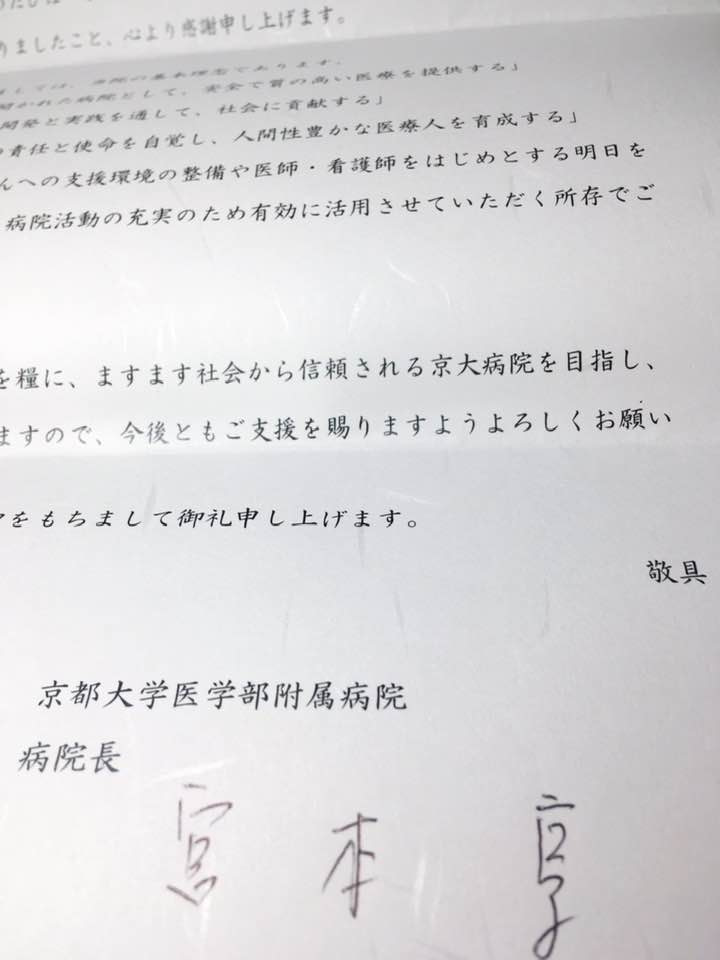 りましたこと、心より感謝申し上げます。
しては、当院の基本理念であります、
開かれた病院として、安全で質の高い医療を提供する」
開発と実践を通して、社会に貢献する」
責任と使命を自覚し、人間性豊かな医療人を育成する」
んへの支援環境の整備や医師・看護師をはじめとする明日を
病院活動の充実のため有効に活用させていただく所存でご
を糧に、ますます社会から信頼される京大病院を目指し、
ますので、今後ともご支援を賜りますようよろしくお願い
をもちまして御礼申し上げます。
敬具
京都大学医学部附属病院
病院長
宮本 享